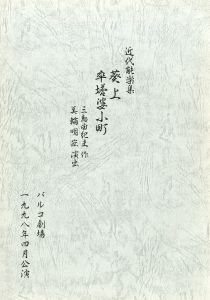 近代能楽集
葵上
卒塔婆小町
三島由紀夫 作
美輪明宏 演出
パルコ劇場
一九九八年四月公演